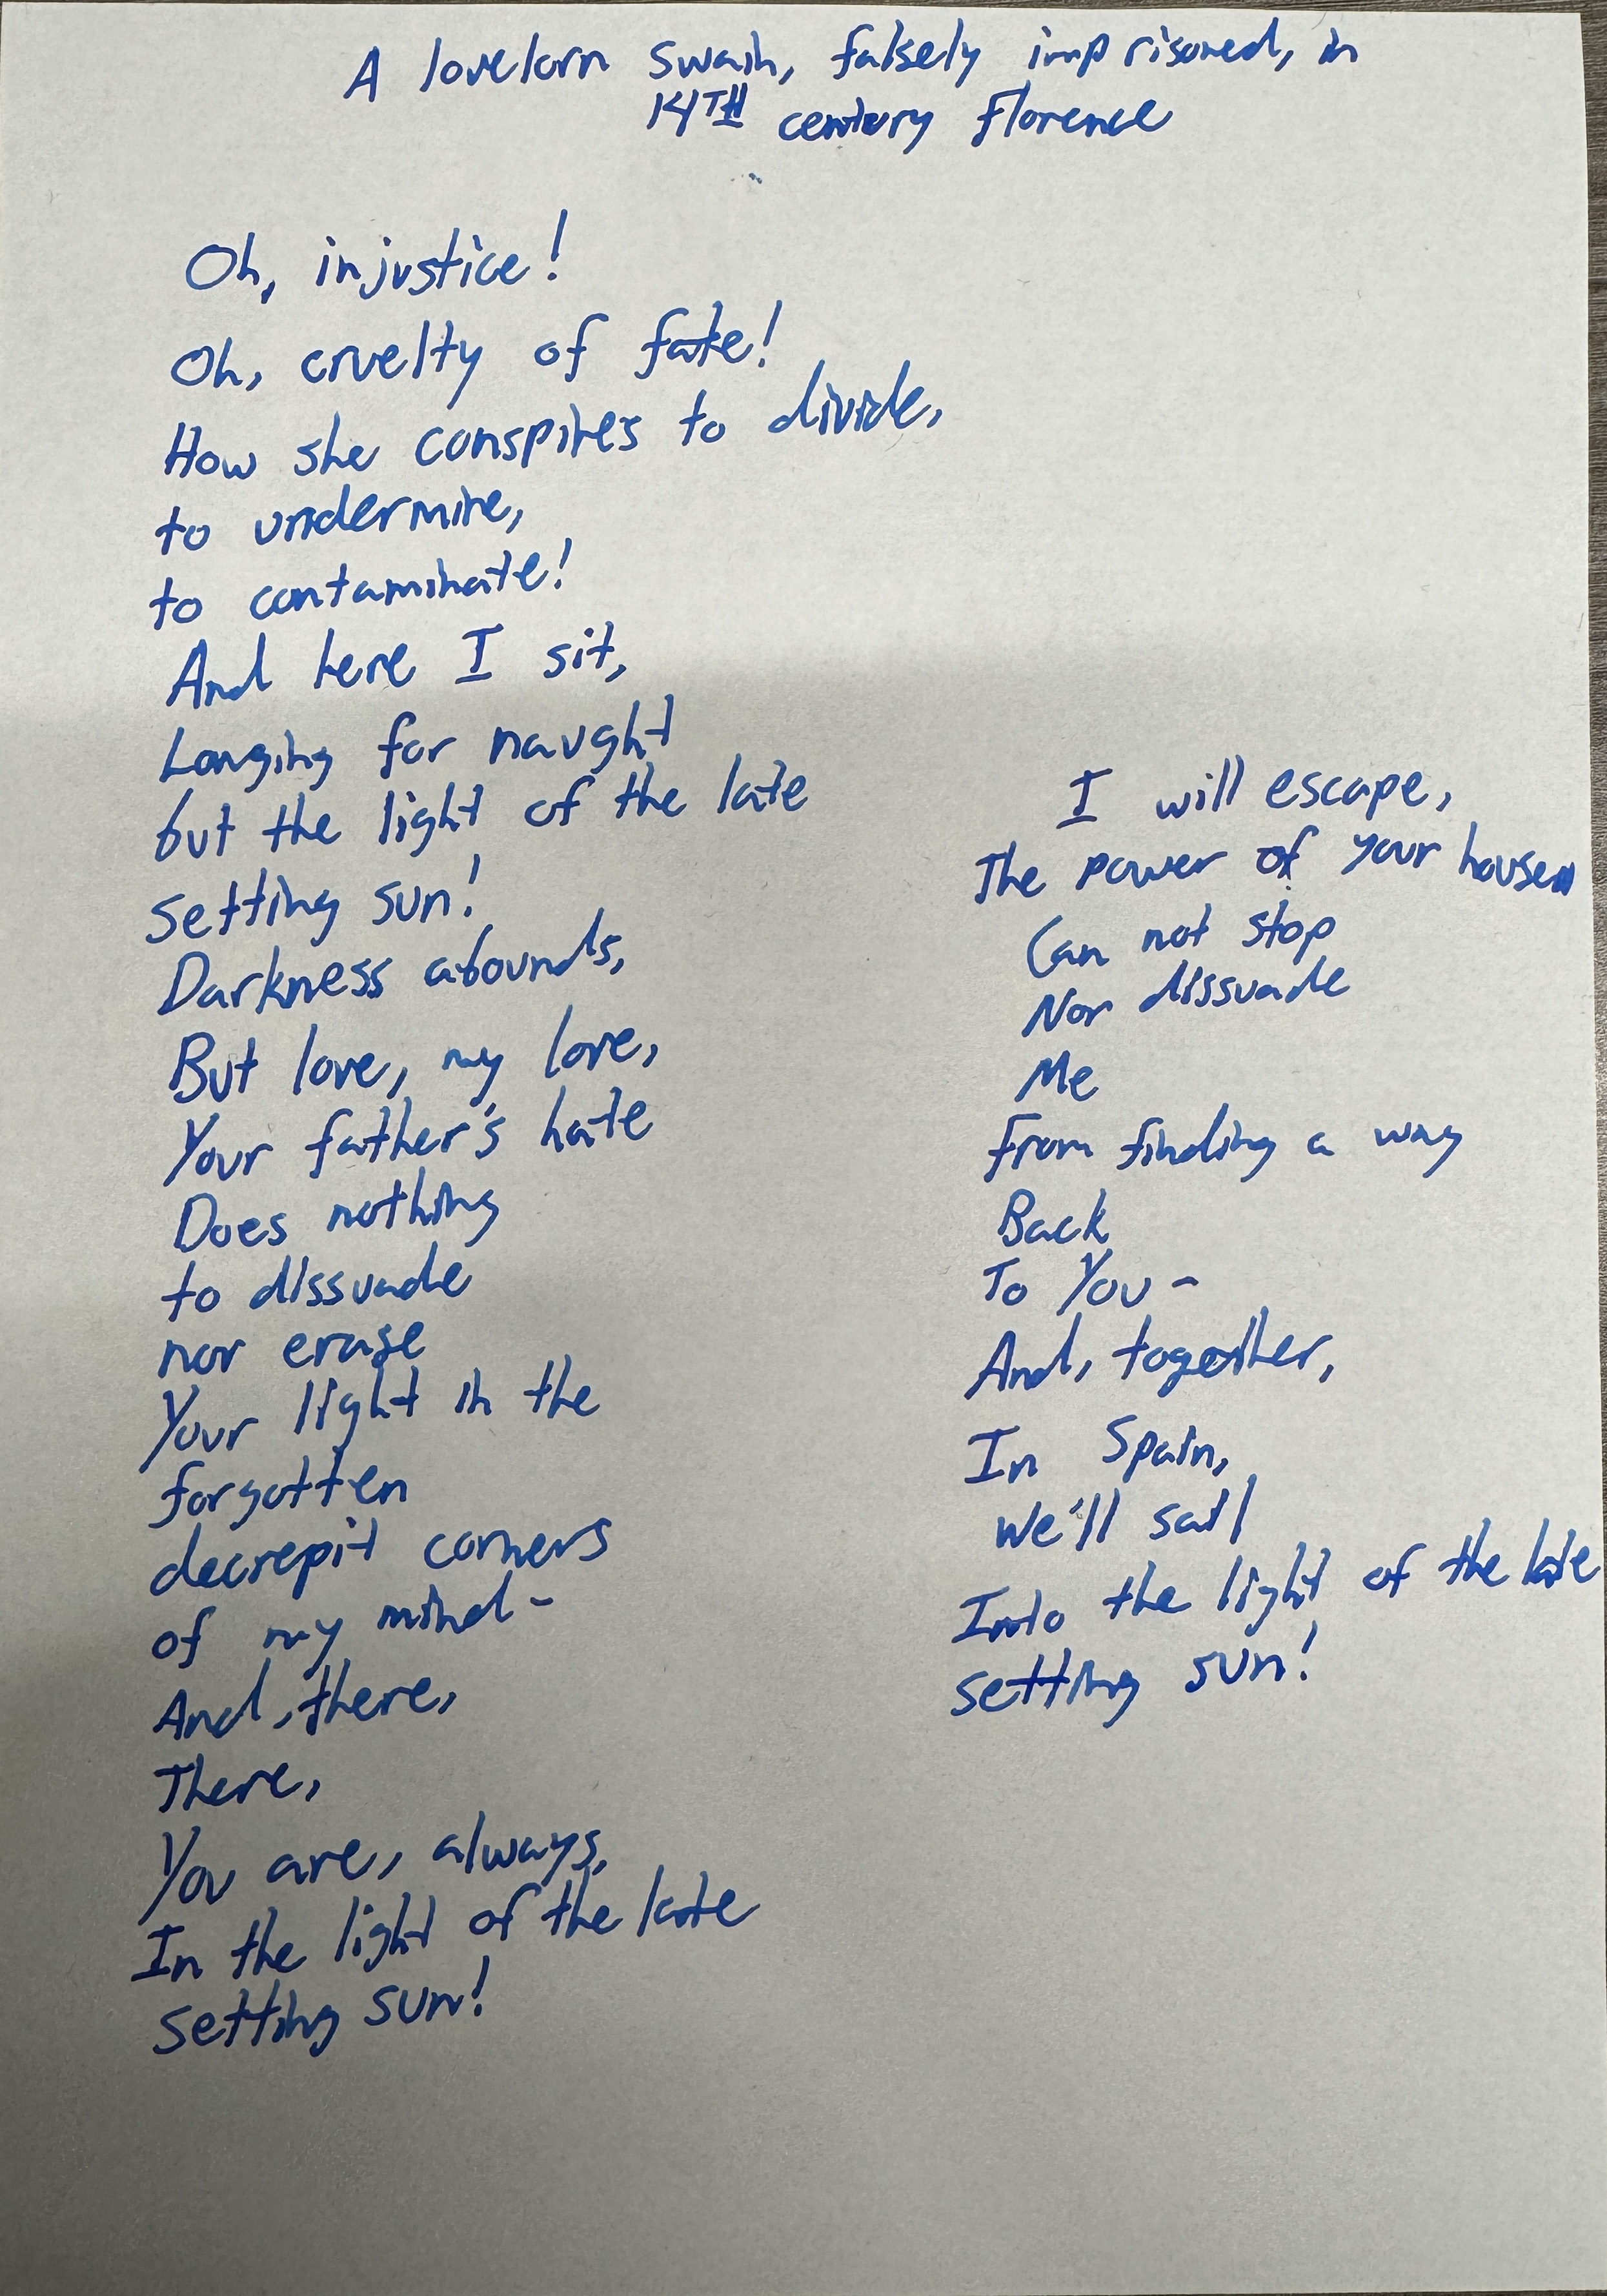 A lovelorn swain, falsely imprisoned, in
14TH century Florence
Oh, injustice!
Oh, cruelty of fate!
How she conspires to divide,
to undermine,
to contaminate!
And here I sit,
Longing for naught
but the light of the late
setting sun!
Darkness abounds,
But love, my love,
Your father's hate
Does nothing
to dissuade
nor erase
Your light in the
forgotten
decrepit corners
of my mind-
And, there,
There,
You are, always,
In the light of the late
setting sun!
I will escape,
The power of your house
Can not stop
Nor dissuade
Me
From finding a way
Back
To You-
And, together,
In Spain,
We'll sail
Into the light of the late
setting sun!